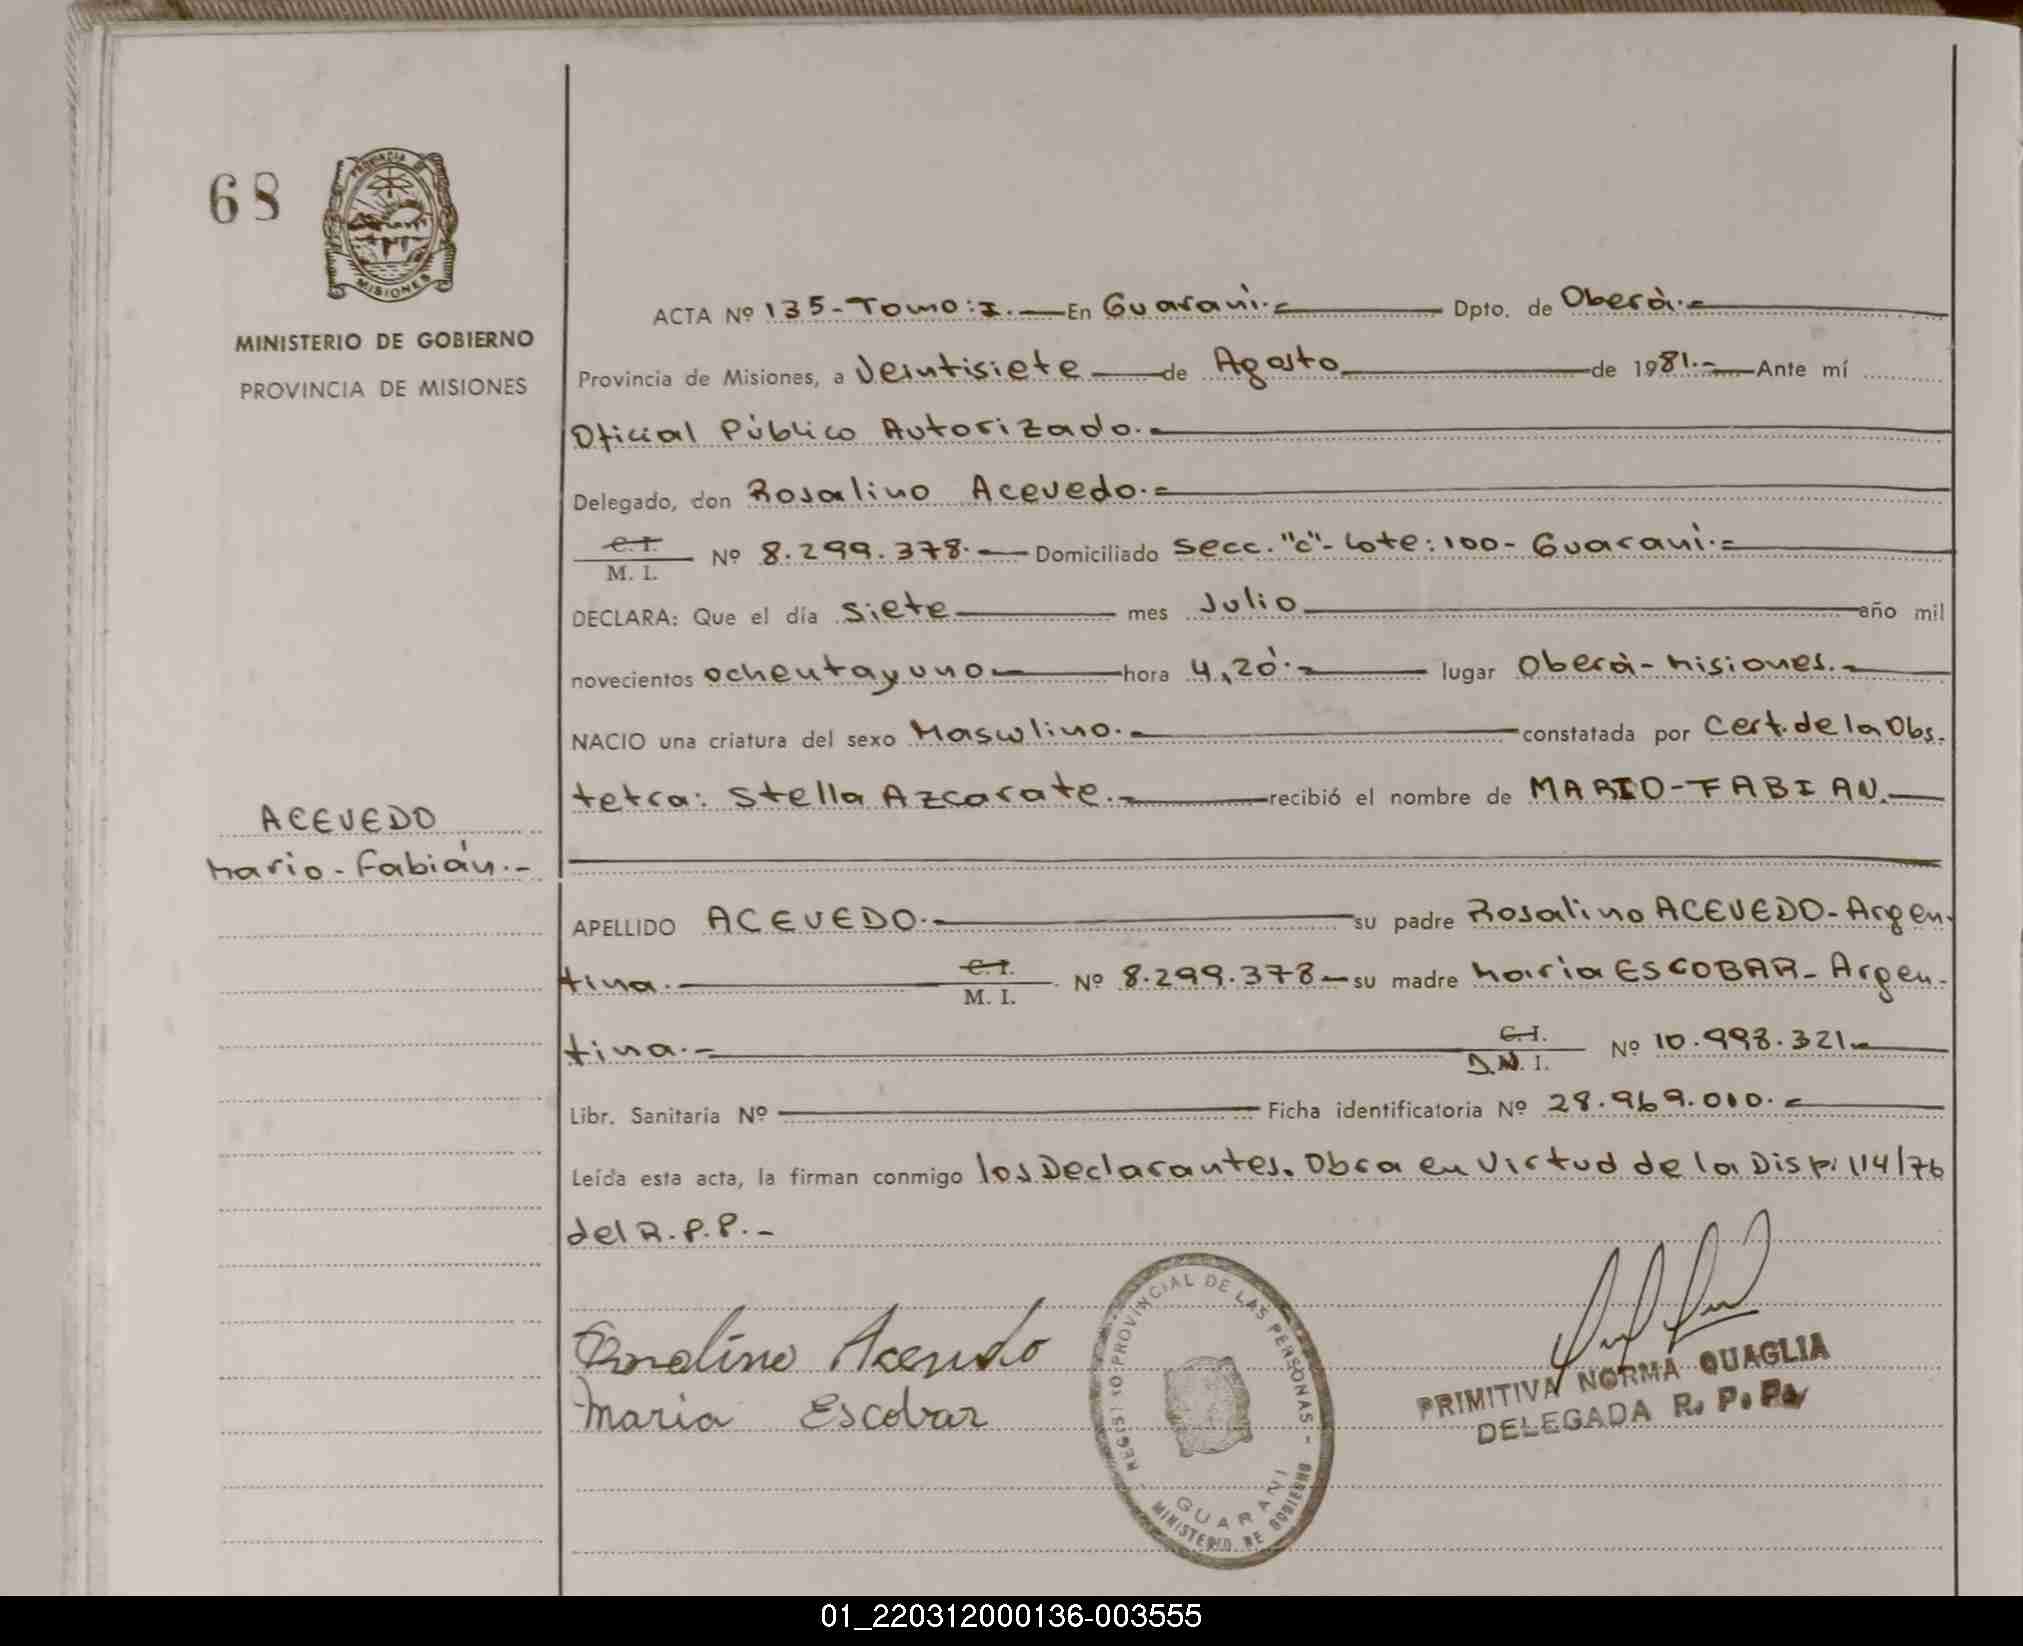 68
PROVINCIA DE
MISIONES
MINISTERIO DE GOBIERNO
PROVINCIA DE MISIONES
ACEVEDO
Mario - Fabián.-
ACTA Nº 135 - Tomo: I. — En Guaraní.= Dpto. de Oberá.=
Provincia de Misiones, a Veintisiete — de Agosto — de 1981.- Ante mí
Oficial Público Autorizado.-
Delegado, don Rosalino Acevedo.=
C. I.
M. I. Nº 8.299.378.- Domiciliado Secc. "C" - Lote: 100 - Guaraní.=
DECLARA: Que el día Siete — mes Julio — año mil
novecientos ochenta y uno — hora 4,20'.- lugar Oberá - Misiones.-
NACIO una criatura del sexo Masculino.- constatada por Cert. de la Obs.
tetra: Stella Azcarate.- recibió el nombre de MARIO - FABIAN.-
APELLIDO ACEVEDO.- su padre Rosalino ACEVEDO - Argen-
tina.- C. I.
M. I. Nº 8.299.378 - su madre Maria ESCOBAR - Argen-
tina.- C. I.
D.N. I. Nº 10.998.321.-
Libr. Sanitaria Nº — Ficha identificatoria Nº 28.969.010.-
Leída esta acta, la firman conmigo los Declarantes. Obra en Virtud de la Disp. 114/76
del R.P.P.-
Rosalino Acevedo
Maria Escobar
REGISTRO PROVINCIAL DE LAS PERSONAS -
GUARANI
MINISTERIO DE GOBIERNO
PRIMITIVA NORMA QUAGLIA
DELEGADA R. P. P.
01_220312000136-003555